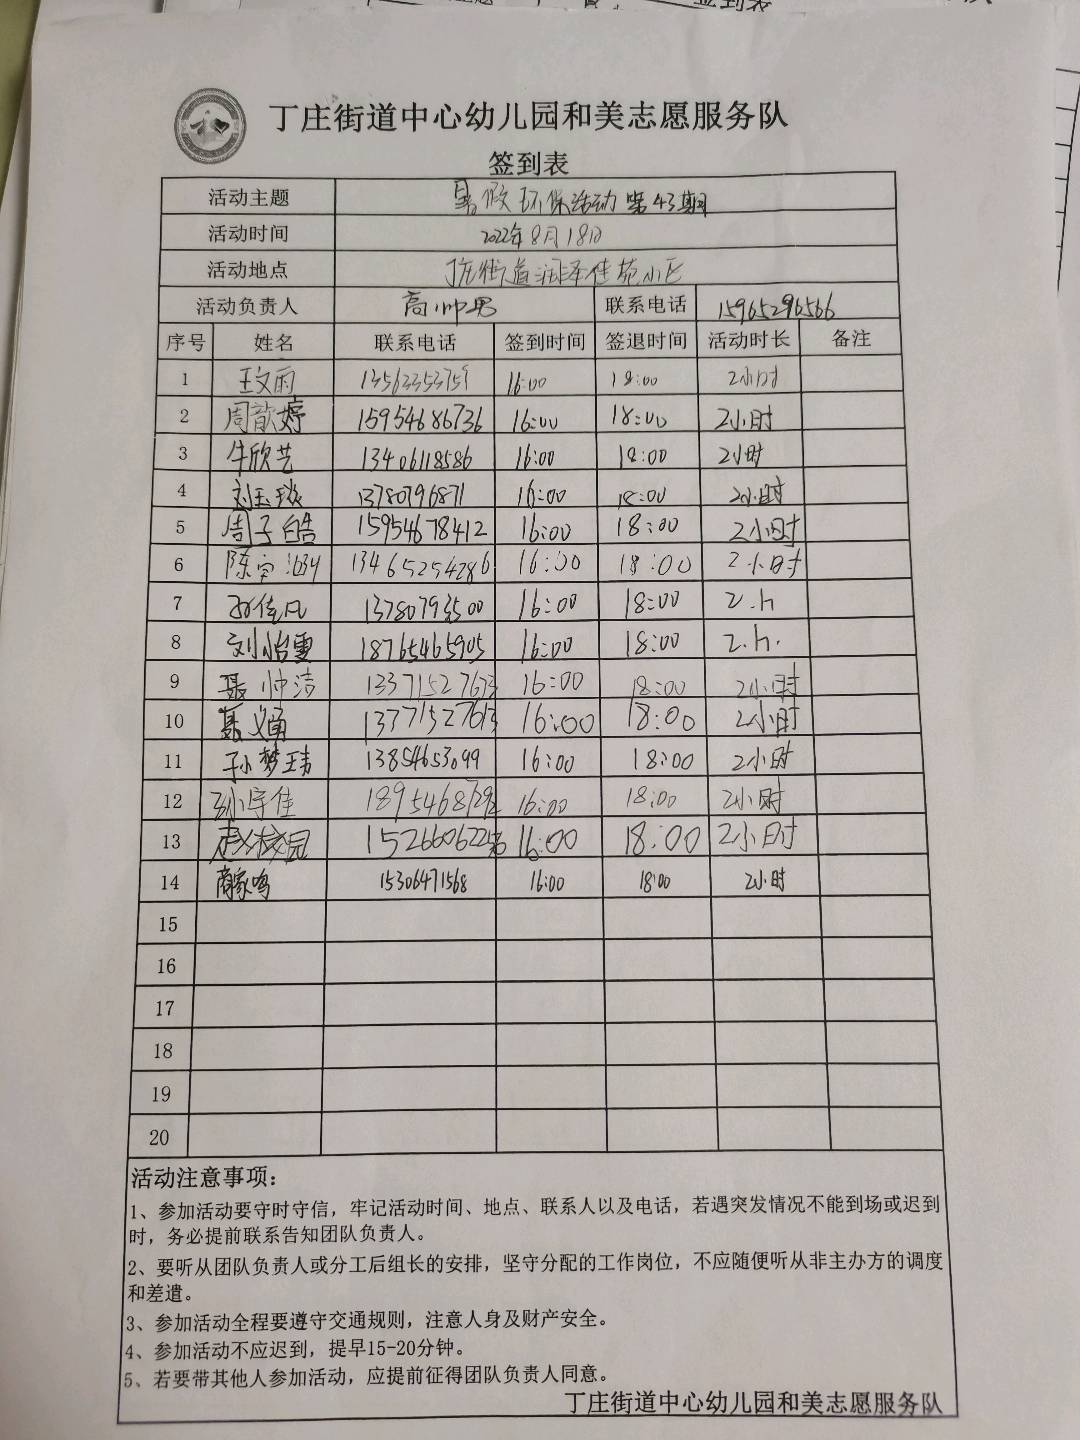 签到表
丁庄街道中心幼儿园和美志愿服务队
签到表
活动主题 暑假环保活动第43期
活动时间 2022年8月18日
活动地点 丁庄街道润泽佳苑小区
活动负责人 高帅男 联系电话 15965296566
序号 姓名 联系电话 签到时间 签退时间 活动时长 备注
1 王文雨 13562353751 16:00 18:00 2小时
2 周歆婷 15954686736 16:00 18:00 2小时
3 牛欣艺 13406118586 16:00 18:00 2小时
4 刘玉琰 13780796871 16:00 18:00 2小时
5 周子皓 15954678412 16:00 18:00 2小时
6 陈 13465254286 16:00 18:00 2小时
7 孙佳凡 13780793500 16:00 18:00 2.h
8 刘怡雯 18765465905 16:00 18:00 2.h.
9 聂帅洁 16:00 18:00 2小时
10 聂义甬 16:00 18:00 2小时
11 孙梦玮 13854653099 16:00 18:00 2小时
12 孙宇佳 16:00 18:00 2小时
13 赵校园 16:00 18:00 2小时
14 商家鸣 15306471568 16:00 18:00 2小时
15
16
17
18
19
20
活动注意事项：
1、参加活动要守时守信，牢记活动时间、地点、联系人以及电话，若遇突发情况不能到场或迟到
时，务必提前联系告知团队负责人。
2、要听从团队负责人或分工后组长的安排，坚守分配的工作岗位，不应随便听从非主办方的调度
和差遣。
3、参加活动全程要遵守交通规则，注意人身及财产安全。
4、参加活动不应迟到，提早15-20分钟。
5、若要带其他人参加活动，应提前征得团队负责人同意。
丁庄街道中心幼儿园和美志愿服务队